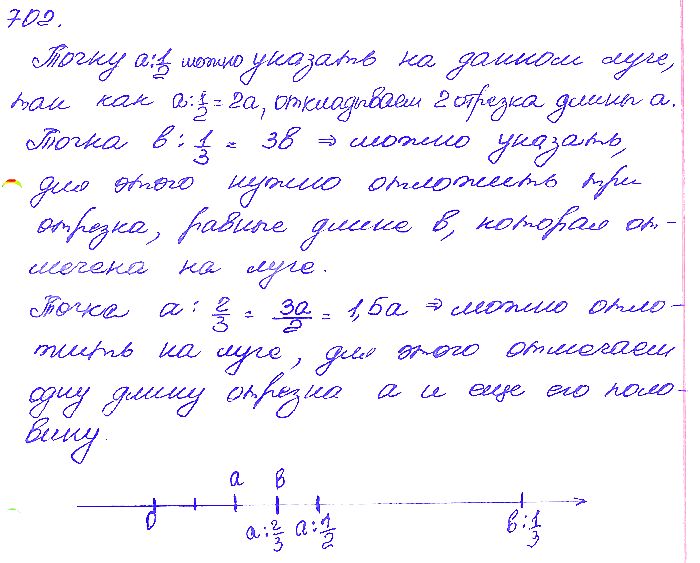 702.
Точку a : 1/2 можно указать на данном луче,
так как a : 1/2 = 2a, откладываем 2 отрезка длины a.
Точка b : 1/3 = 3b ⇒ можно указать,
для этого нужно отложить три
отрезка, равные длине b, которая от-
мечена на луче.
Точка a : 2/3 = 3a/2 = 1,5a ⇒ можно отло-
жить на луче, для этого отмечаем
одну длину отрезка a и еще его поло-
вину.
a b
0 a : 2/3 a : 1/2 b : 1/3